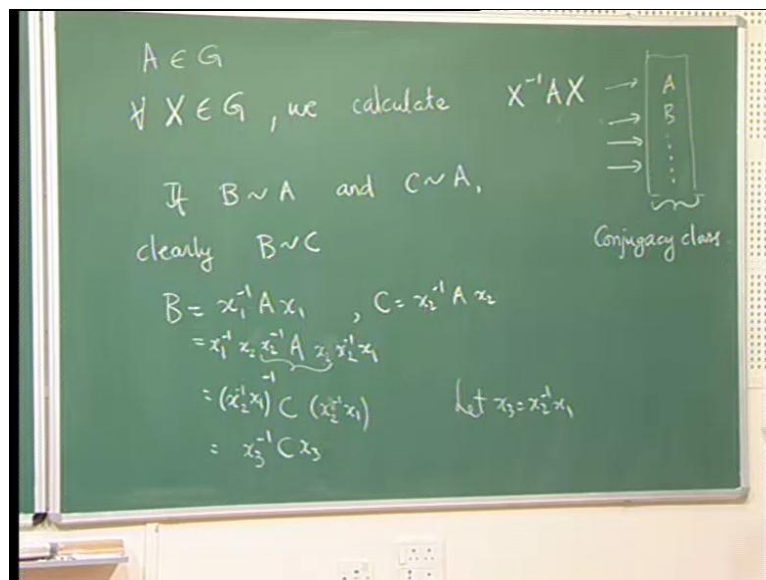 A ∈ G
∀ X ∈ G, we calculate X⁻¹AX
A
B
Conjugacy class
If B ~ A and C ~ A,
clearly B ~ C
B = x₁⁻¹ A x₁ , C = x₂⁻¹ A x₂
= x₁⁻¹ x₂ x₂⁻¹ A x₂ x₂⁻¹ x₁
= (x₂⁻¹x₁)⁻¹ C (x₂⁻¹x₁) Let x₃ = x₂⁻¹x₁
= x₃⁻¹ C x₃